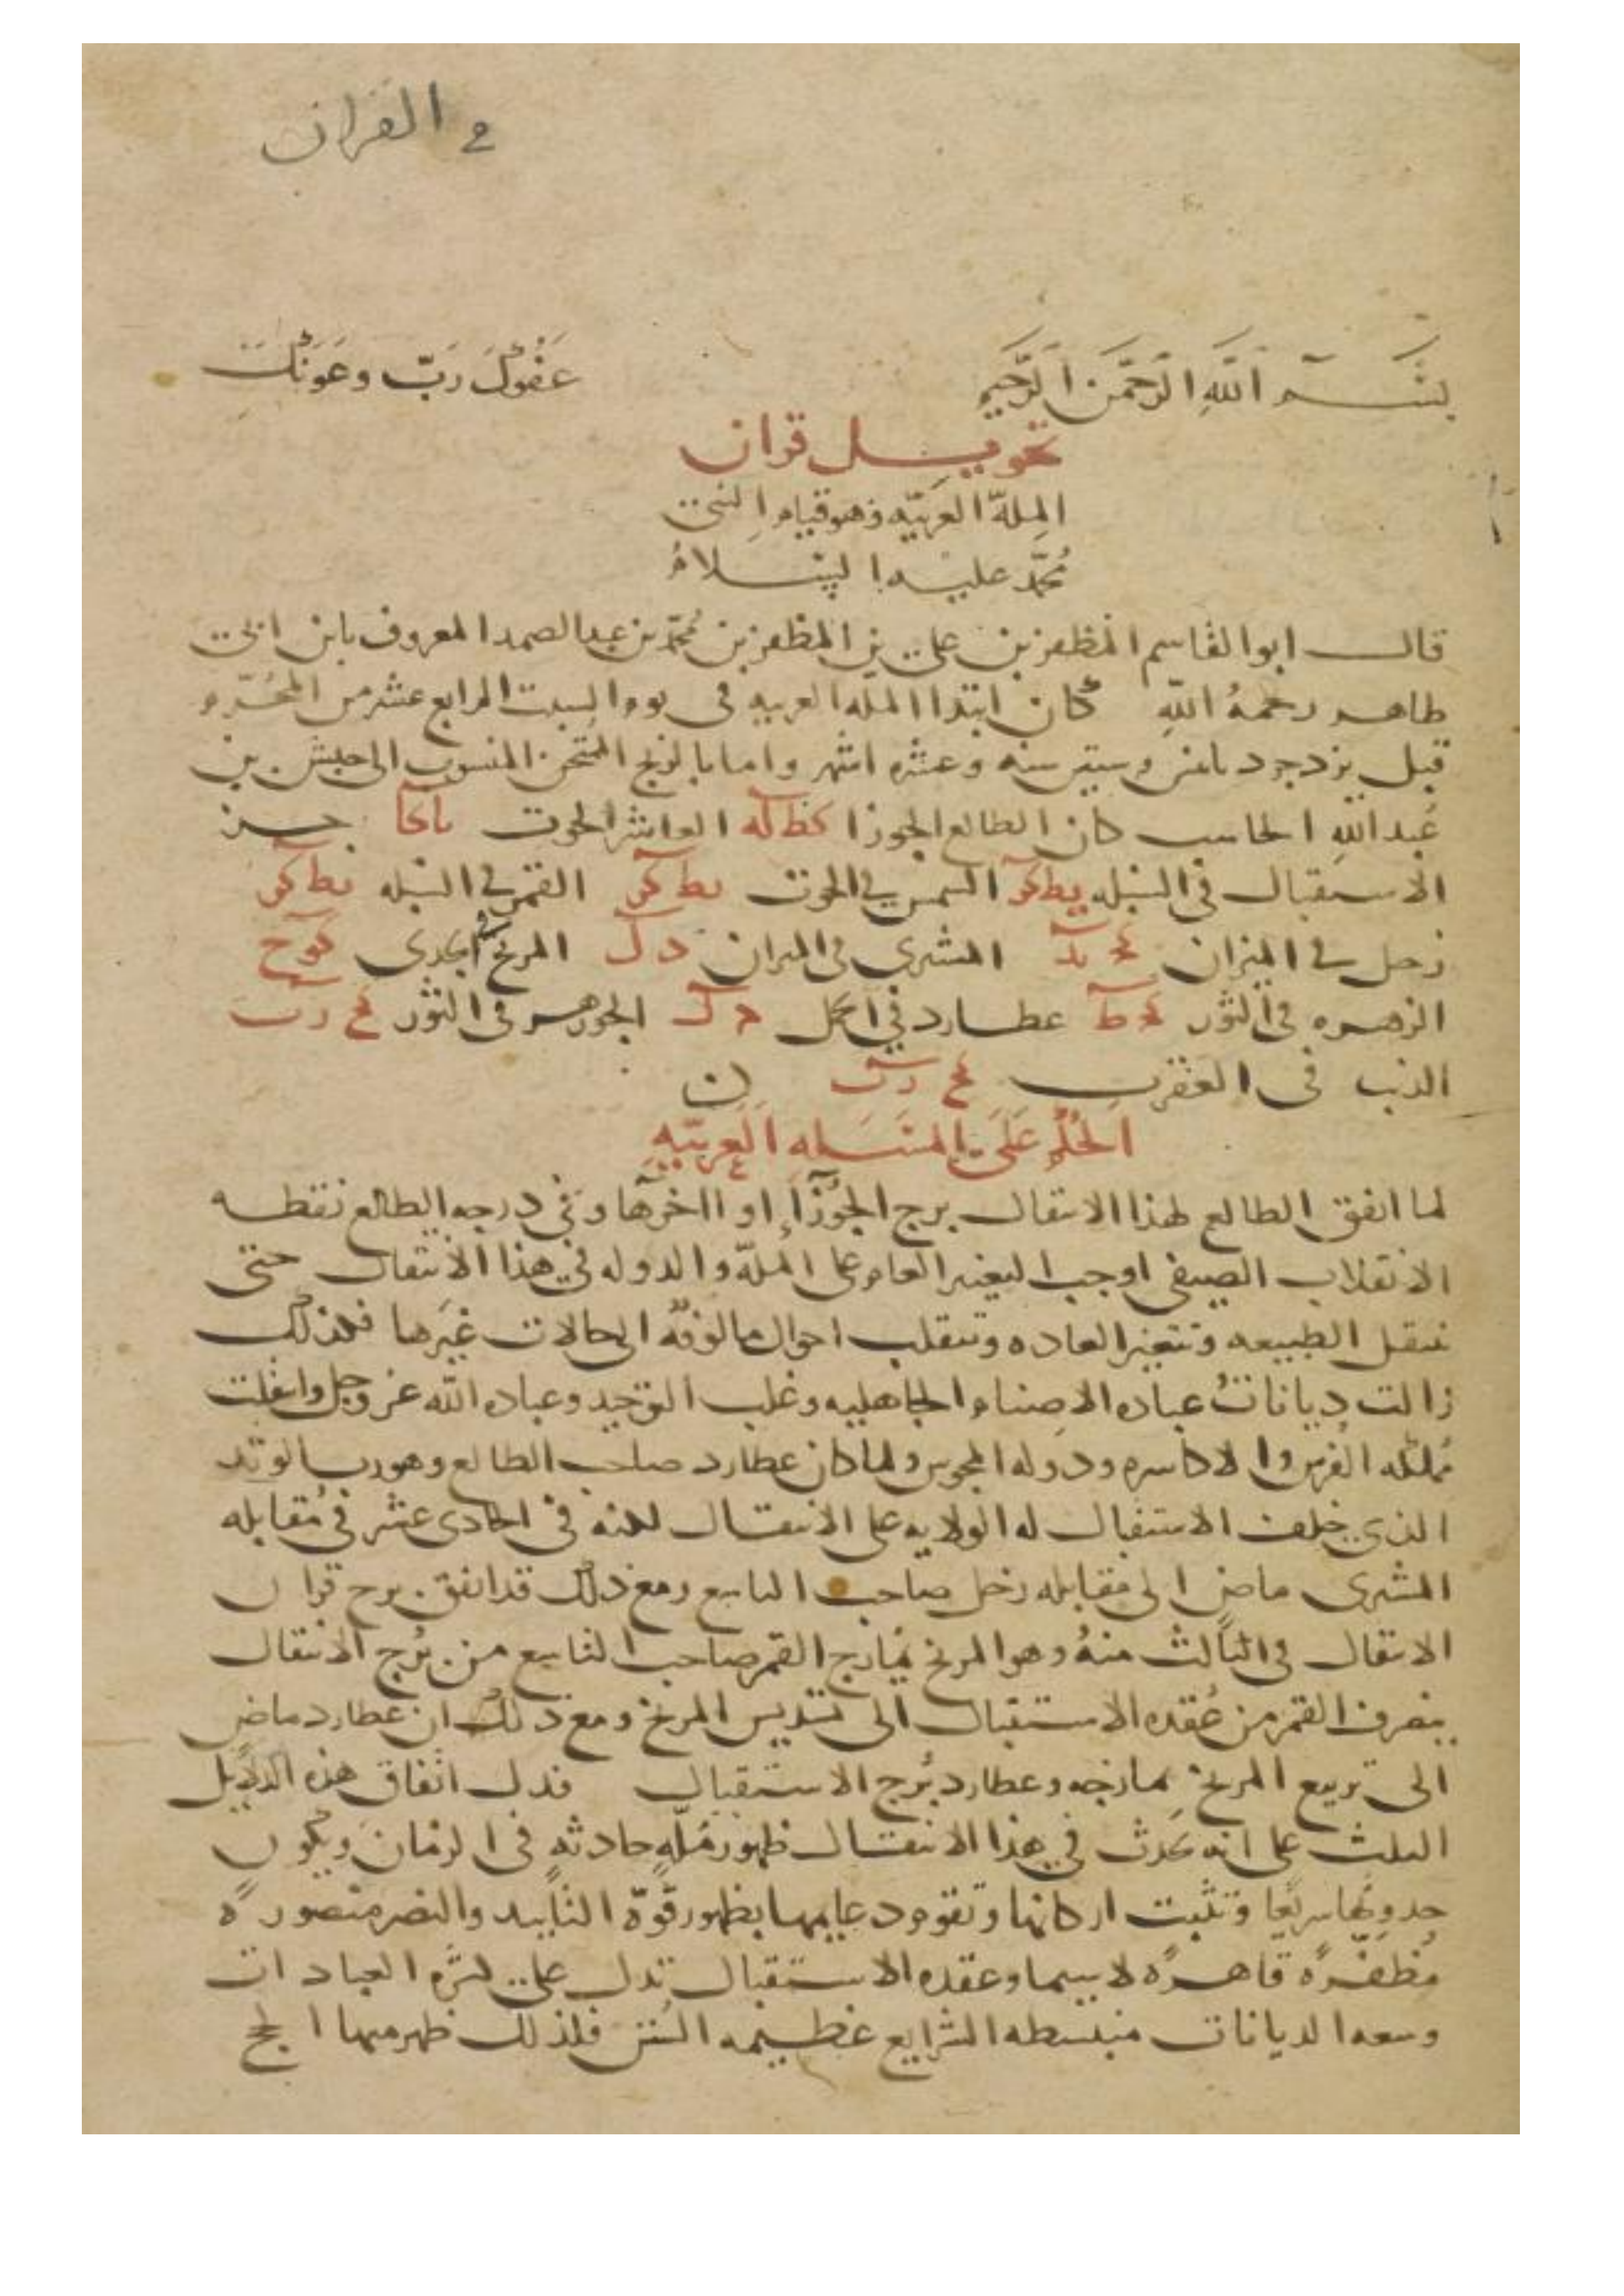 في القران
بسم الله الرحمن الرحيم عفوك رب وعونك
تحويل قران
الملة العربيه وهو قيام النبي
محمد عليه السلام
قال ابو القاسم المظفر بن علي بن المظفر بن محمد بن عبد الصمد المعروف بابن ابي
طاهر رحمه الله كان ابتدا المله العربيه في يوم السبت الرابع عشر من المحرم
قبل يزدجرد باثنن وستين سنه وعشره اشهر واما بالزيج الممتحن المنسوب الى حبش بن
عبد الله الحاسب كان الطالع الجوزا كط له العاشر الحوت جز
الاستقبال في السنبله يط كو الشمس في الحوت يط كو القمر في السنبله يط كو
زحل في الميزان المشتري في الميزان د ل المريخ في الجدى
الزهره في الثور عطارد في الحمل الجوزهر في الثور
الذنب في العقرب
الحكم على المسله العربيه
لما اتفق الطالع لهذا الانتقال برج الجوزآ او اخرها وفي درجه الطالع نقطه
الانقلاب الصيفي اوجب التغير العام على الملة والدوله في هذا الانتقال حتى
تنتقل الطبيعه وتتغير العاده وتنقلب احوال مالوفة الى حالات غيرها فلذلك
زالت ديانات عباده الاصنام الجاهليه وغلب التوحيد وعباده الله عز وجل وانتقلت
مملكه الفرس والاكاسره ودوله المجوس ولما كان عطارد صاحب الطالع وهو رب الوتد
الذي خلف الاستقبال له الولايه على الانتقال لكنه في الحادى عشر في مقابله
المشترى ماض الى مقابله زحل صاحب التاسع ومع ذلك قد اتفق برج قران
الانتقال في الثالث منه وهو المريخ يمازج القمر صاحب التاسع من برج الانتقال
ينصرف القمر من عقده الاستقبال الى تسديس المريخ ومع ذلك ان عطارد ماض
الى تربيع المريخ يمازجه وعطارد برج الاستقبال فدل اتفاق هذه الدلايل
الثلث على انه يحدث في هذا الانتقال ظهور ملة حادثه في الزمان ويكون
حدوثها سريعا وتثبت اركانها وتقوم دعايمها بظهور قوة التاييد والنصر منصورة
مظفرة قاهرة لا سيما وعقده الاستقبال تدل على كثره العبادات
وسعه الديانات منبسطه الشرايع عظيمه السنن فلذلك ظهر منها الحج